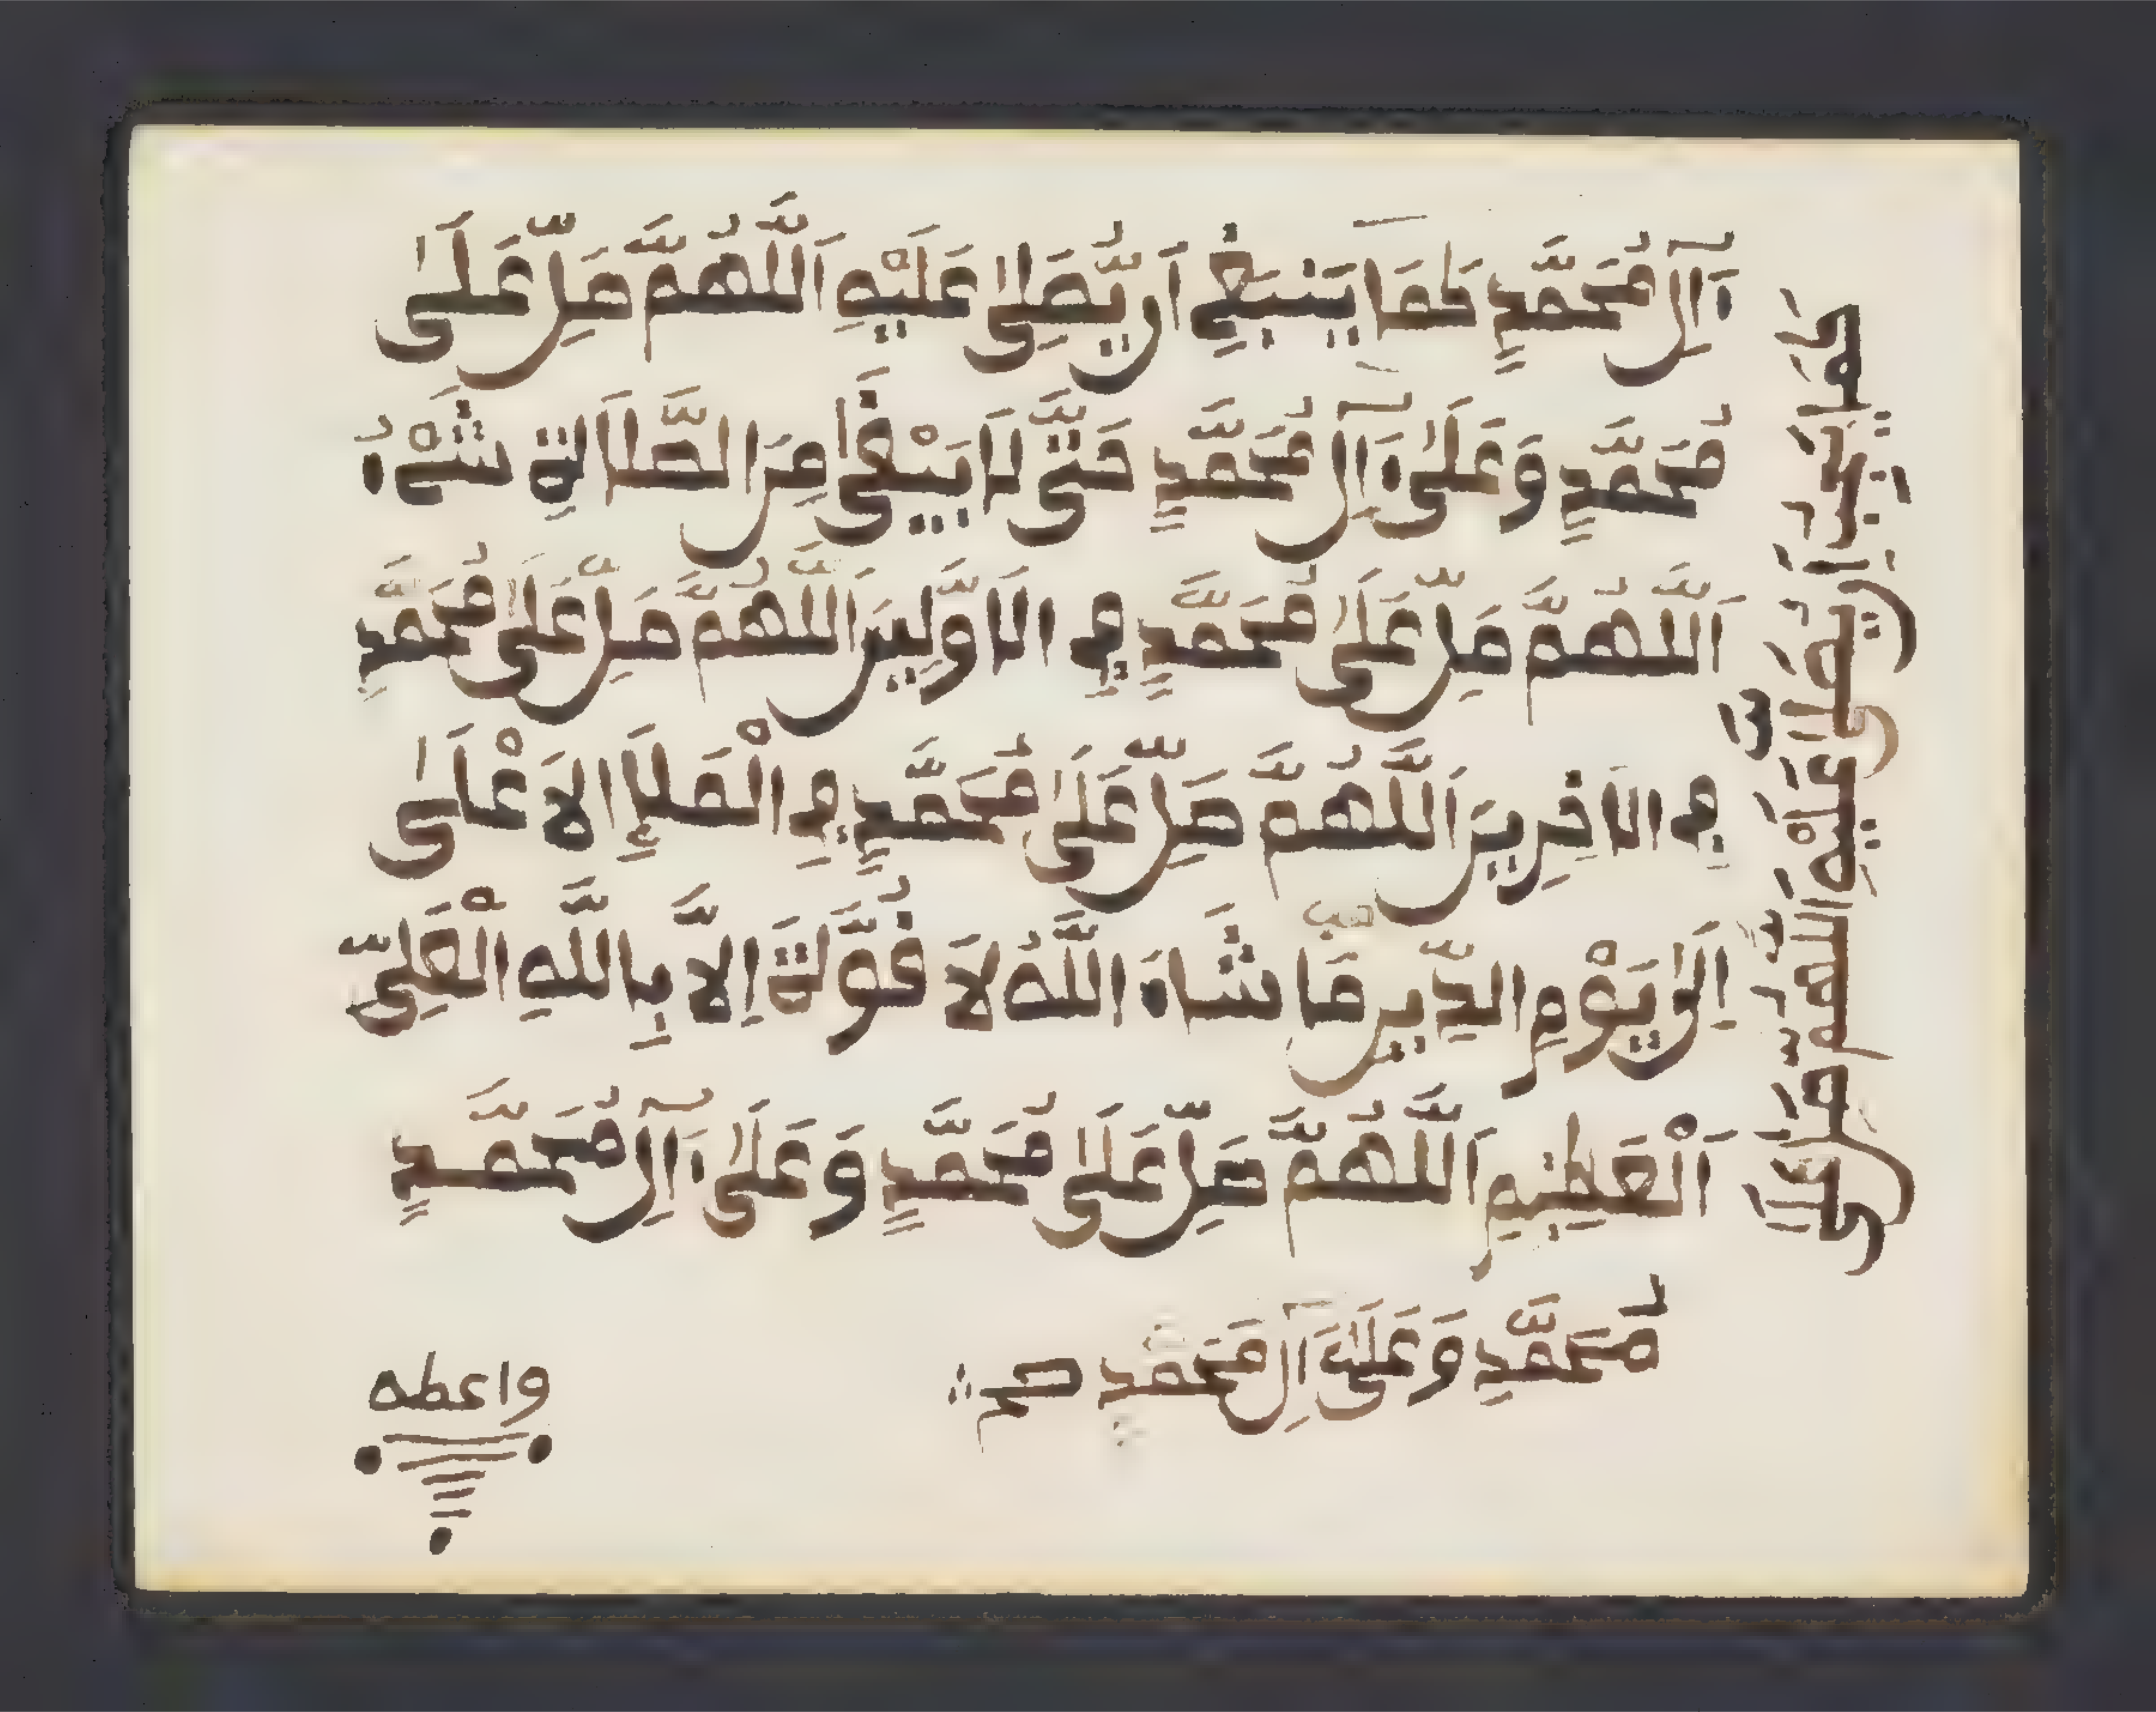 ءَالِ مُحَمَّدٍ كَمَا يَنْبَغِي أَن يُّصَلِّىٰ عَلَيْهِ اَللَّهُمَّ صَلِّ عَلَىٰ
مُحَمَّدٍ وَعَلَىٰ ءَالِ مُحَمَّدٍ حَتَّىٰ لَا يَبْقَىٰ مِنَ الصَّلَاةِ شَيْءٌ
اَللَّهُمَّ صَلِّ عَلَىٰ مُحَمَّدٍ فِي الَاوَّلِينَ اَللَّهُمَّ صَلِّ عَلَىٰ مُحَمَّدٍ
فِي الَاخِرِينَ اَللَّهُمَّ صَلِّ عَلَىٰ مُحَمَّدٍ فِي الْمَلَإِ الَاعْلَىٰ
إِلَىٰ يَوْمِ الدِّينِ مَا شَاءَ اللَّهُ لَا قُوَّةَ إِلَّا بِاللَّهِ الْعَلِيِّ
اَلْعَظِيمِ اَللَّهُمَّ صَلِّ عَلَىٰ مُحَمَّدٍ وَعَلَىٰ ءَالِ مُحَمَّدٍ
مُحَمَّدٍ وَعَلَىٰ ءَالِ مُحَمَّدٍ صح
واعطه
كَمَا يَجِبُ أَن يُصَلَّىٰ عَلَيْهِ اَللَّهُمَّ صَلِّ عَلَىٰ